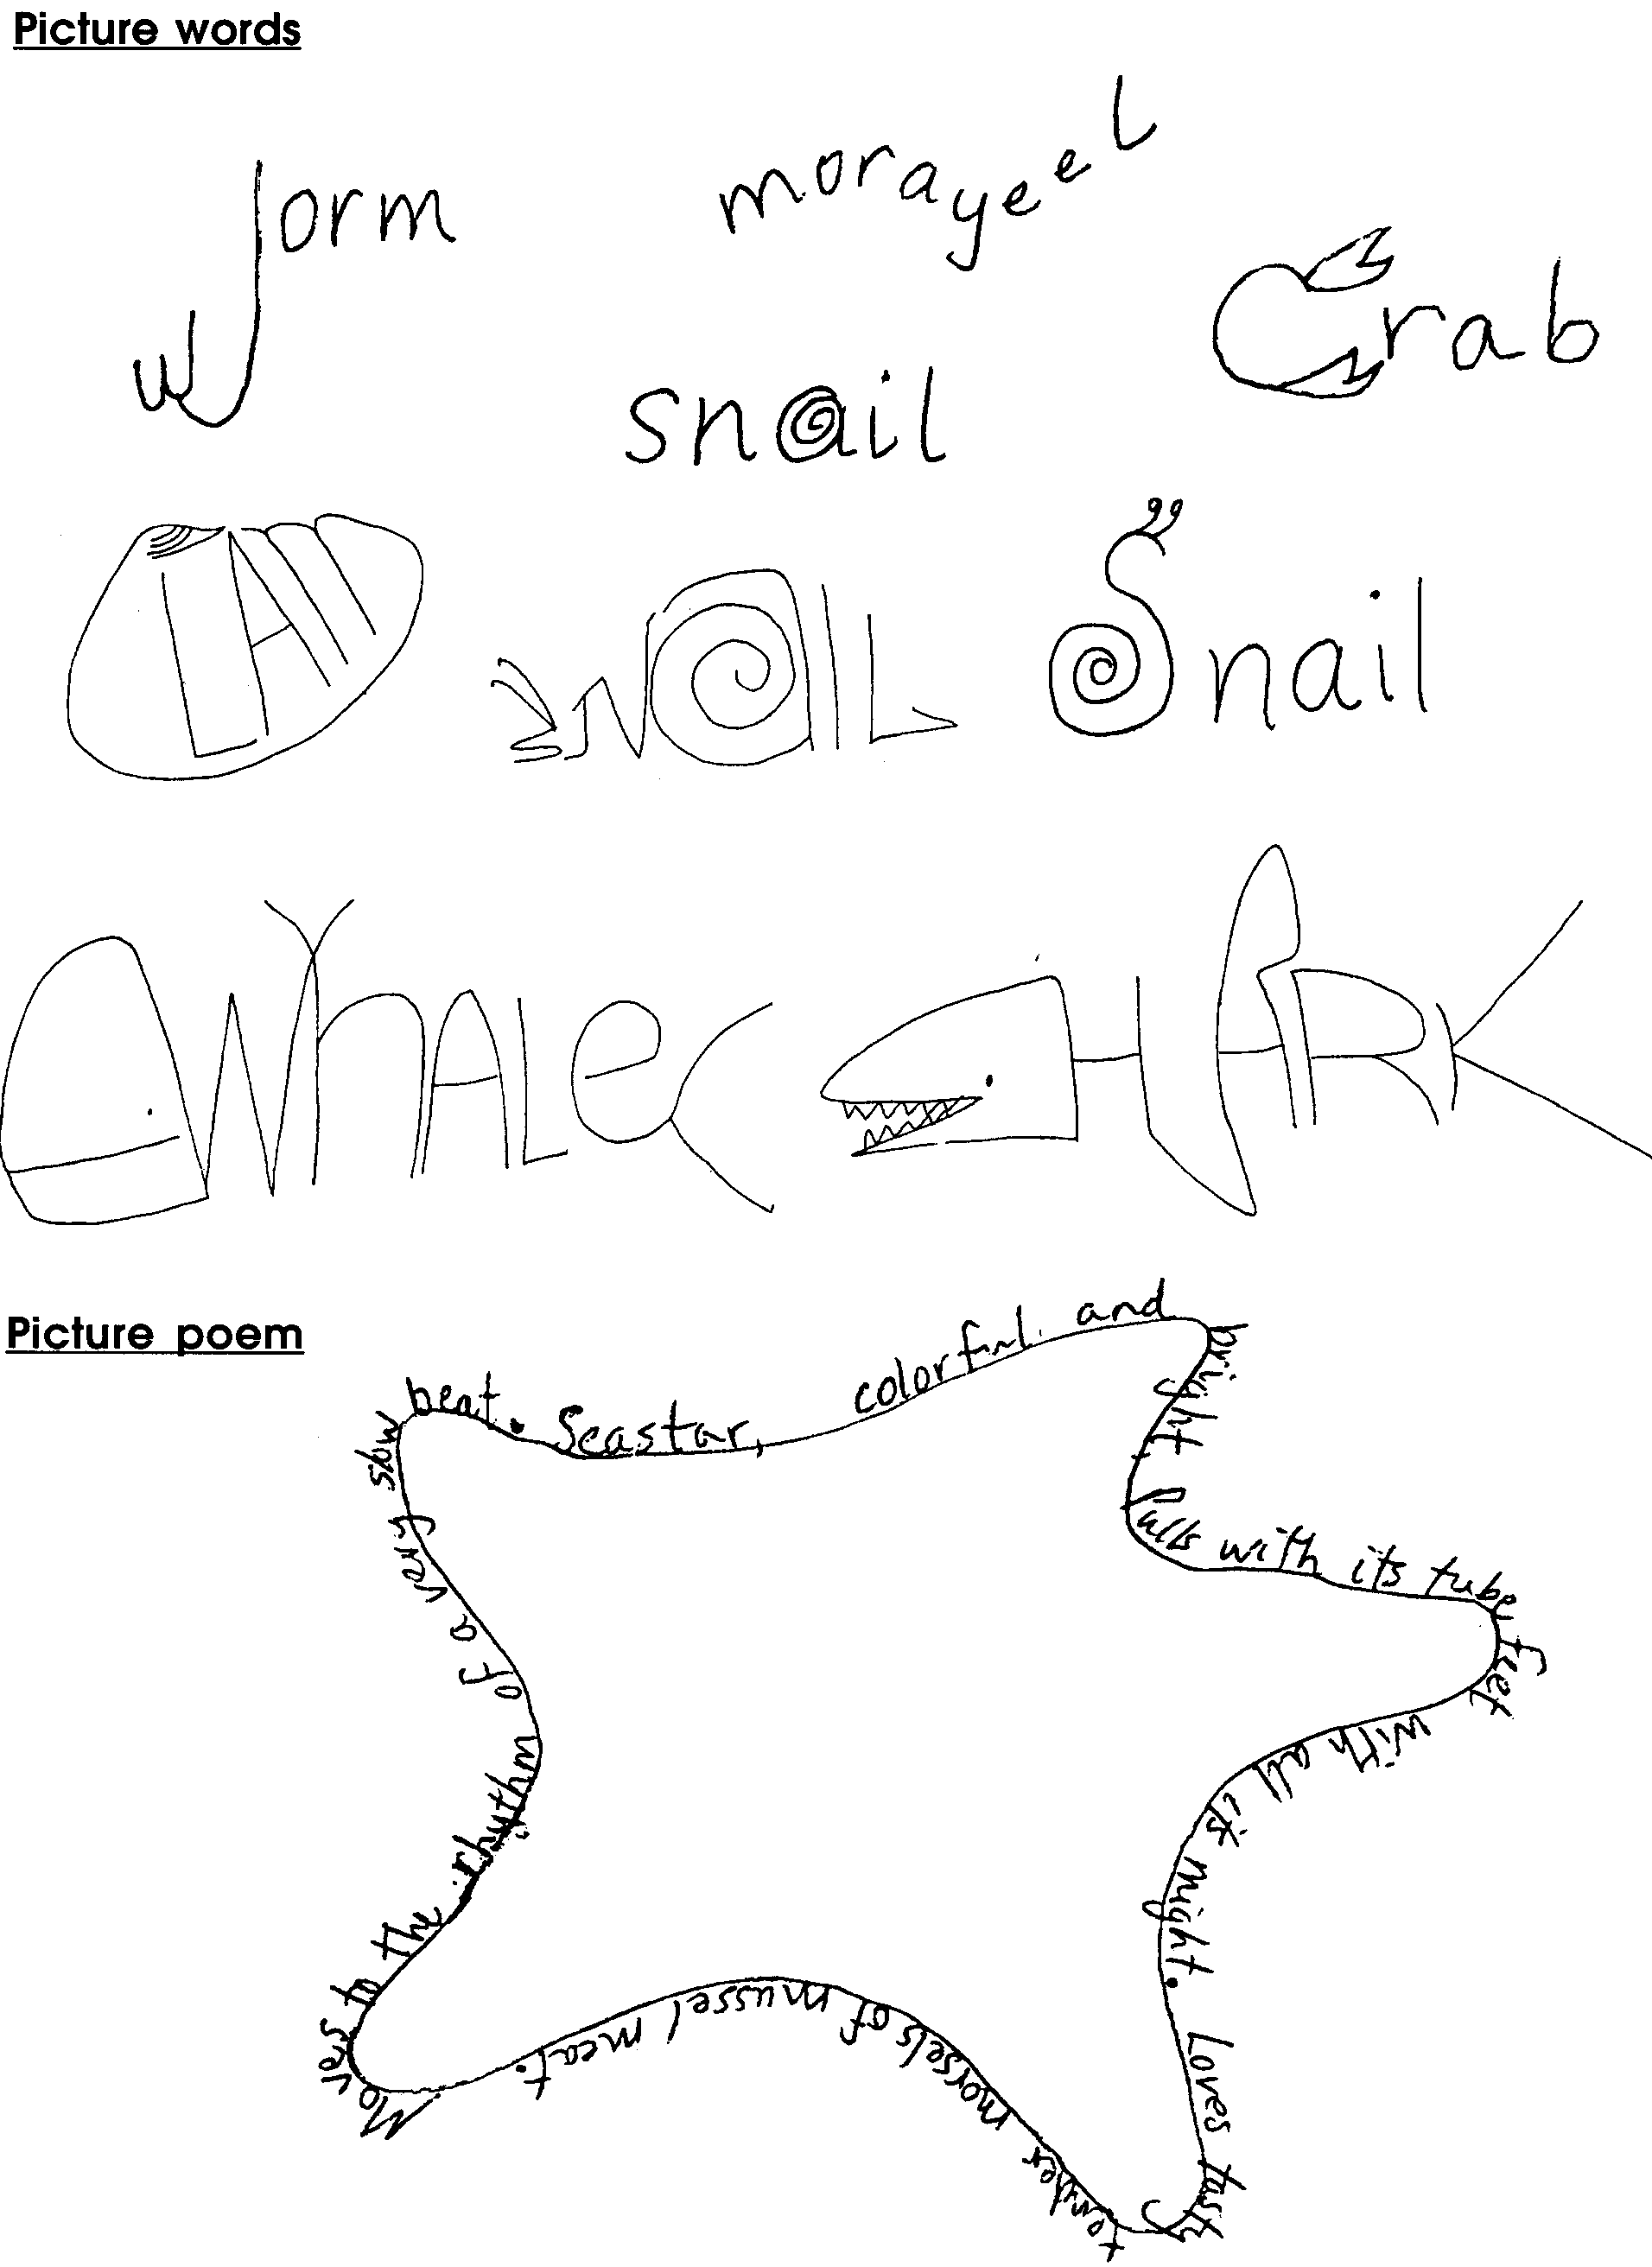 Picture words
worm
moray eel
Crab
snail
CLAM
SNaIL
Snail
WhALe
SHARK
Picture poem
Seastar, colorful and
bright, Pulls with its tube
feet with all its might. Loves tasty
tender morsels of mussel meat.
Moves to the rhythm of a very slow beat.